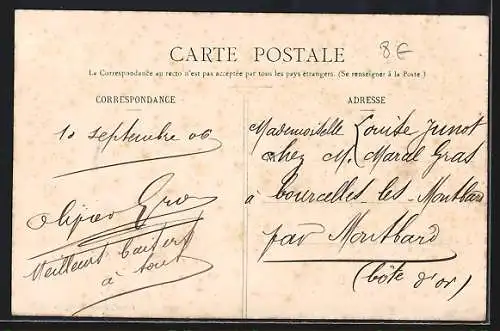 8€
CARTE POSTALE
La Correspondance au recto n'est pas acceptée par tous les pays étrangers. (Se renseigner à la Poste.)
CORRESPONDANCE
10 septembre 06
Meilleurs baisers
à tous
ADRESSE
Mademoiselle Louise Junot
chez M. Marcel Gras
à Courcelles-les-Montbard
par Montbard
(Côte d'or)